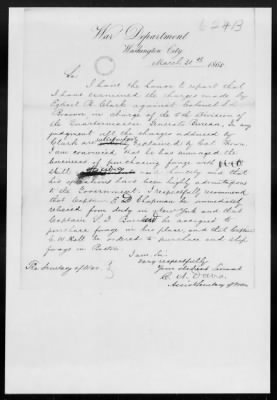 624B
War Department
Washington City.
March 20th 1865
Sir
I have the honor to report that
I have examined the charges made by
Egbert P. Clark against Colonel S. L.
Brown in charge of the 5th Division of
the Quartermaster Generals Bureau. In my
judgment all the charges adduced by
Clark are explained by Col. Brown.
I am convinced that he has managed the
business of purchasing forage with great
skill and honesty and that
his operations have been highly advantageous
to the Government. I respectfully recommend
that Captain Chapman be immediately
relieved from duty in New York and that
Captain be assigned to
purchase forage in his place, and that Captain
E. W. Hall be ordered to purchase and ship
forage in Boston.
I am, Sir,
Very respectfully
Your obedient Servant
C. A. Dana.
Assist Secretary of War
The Secretary of War